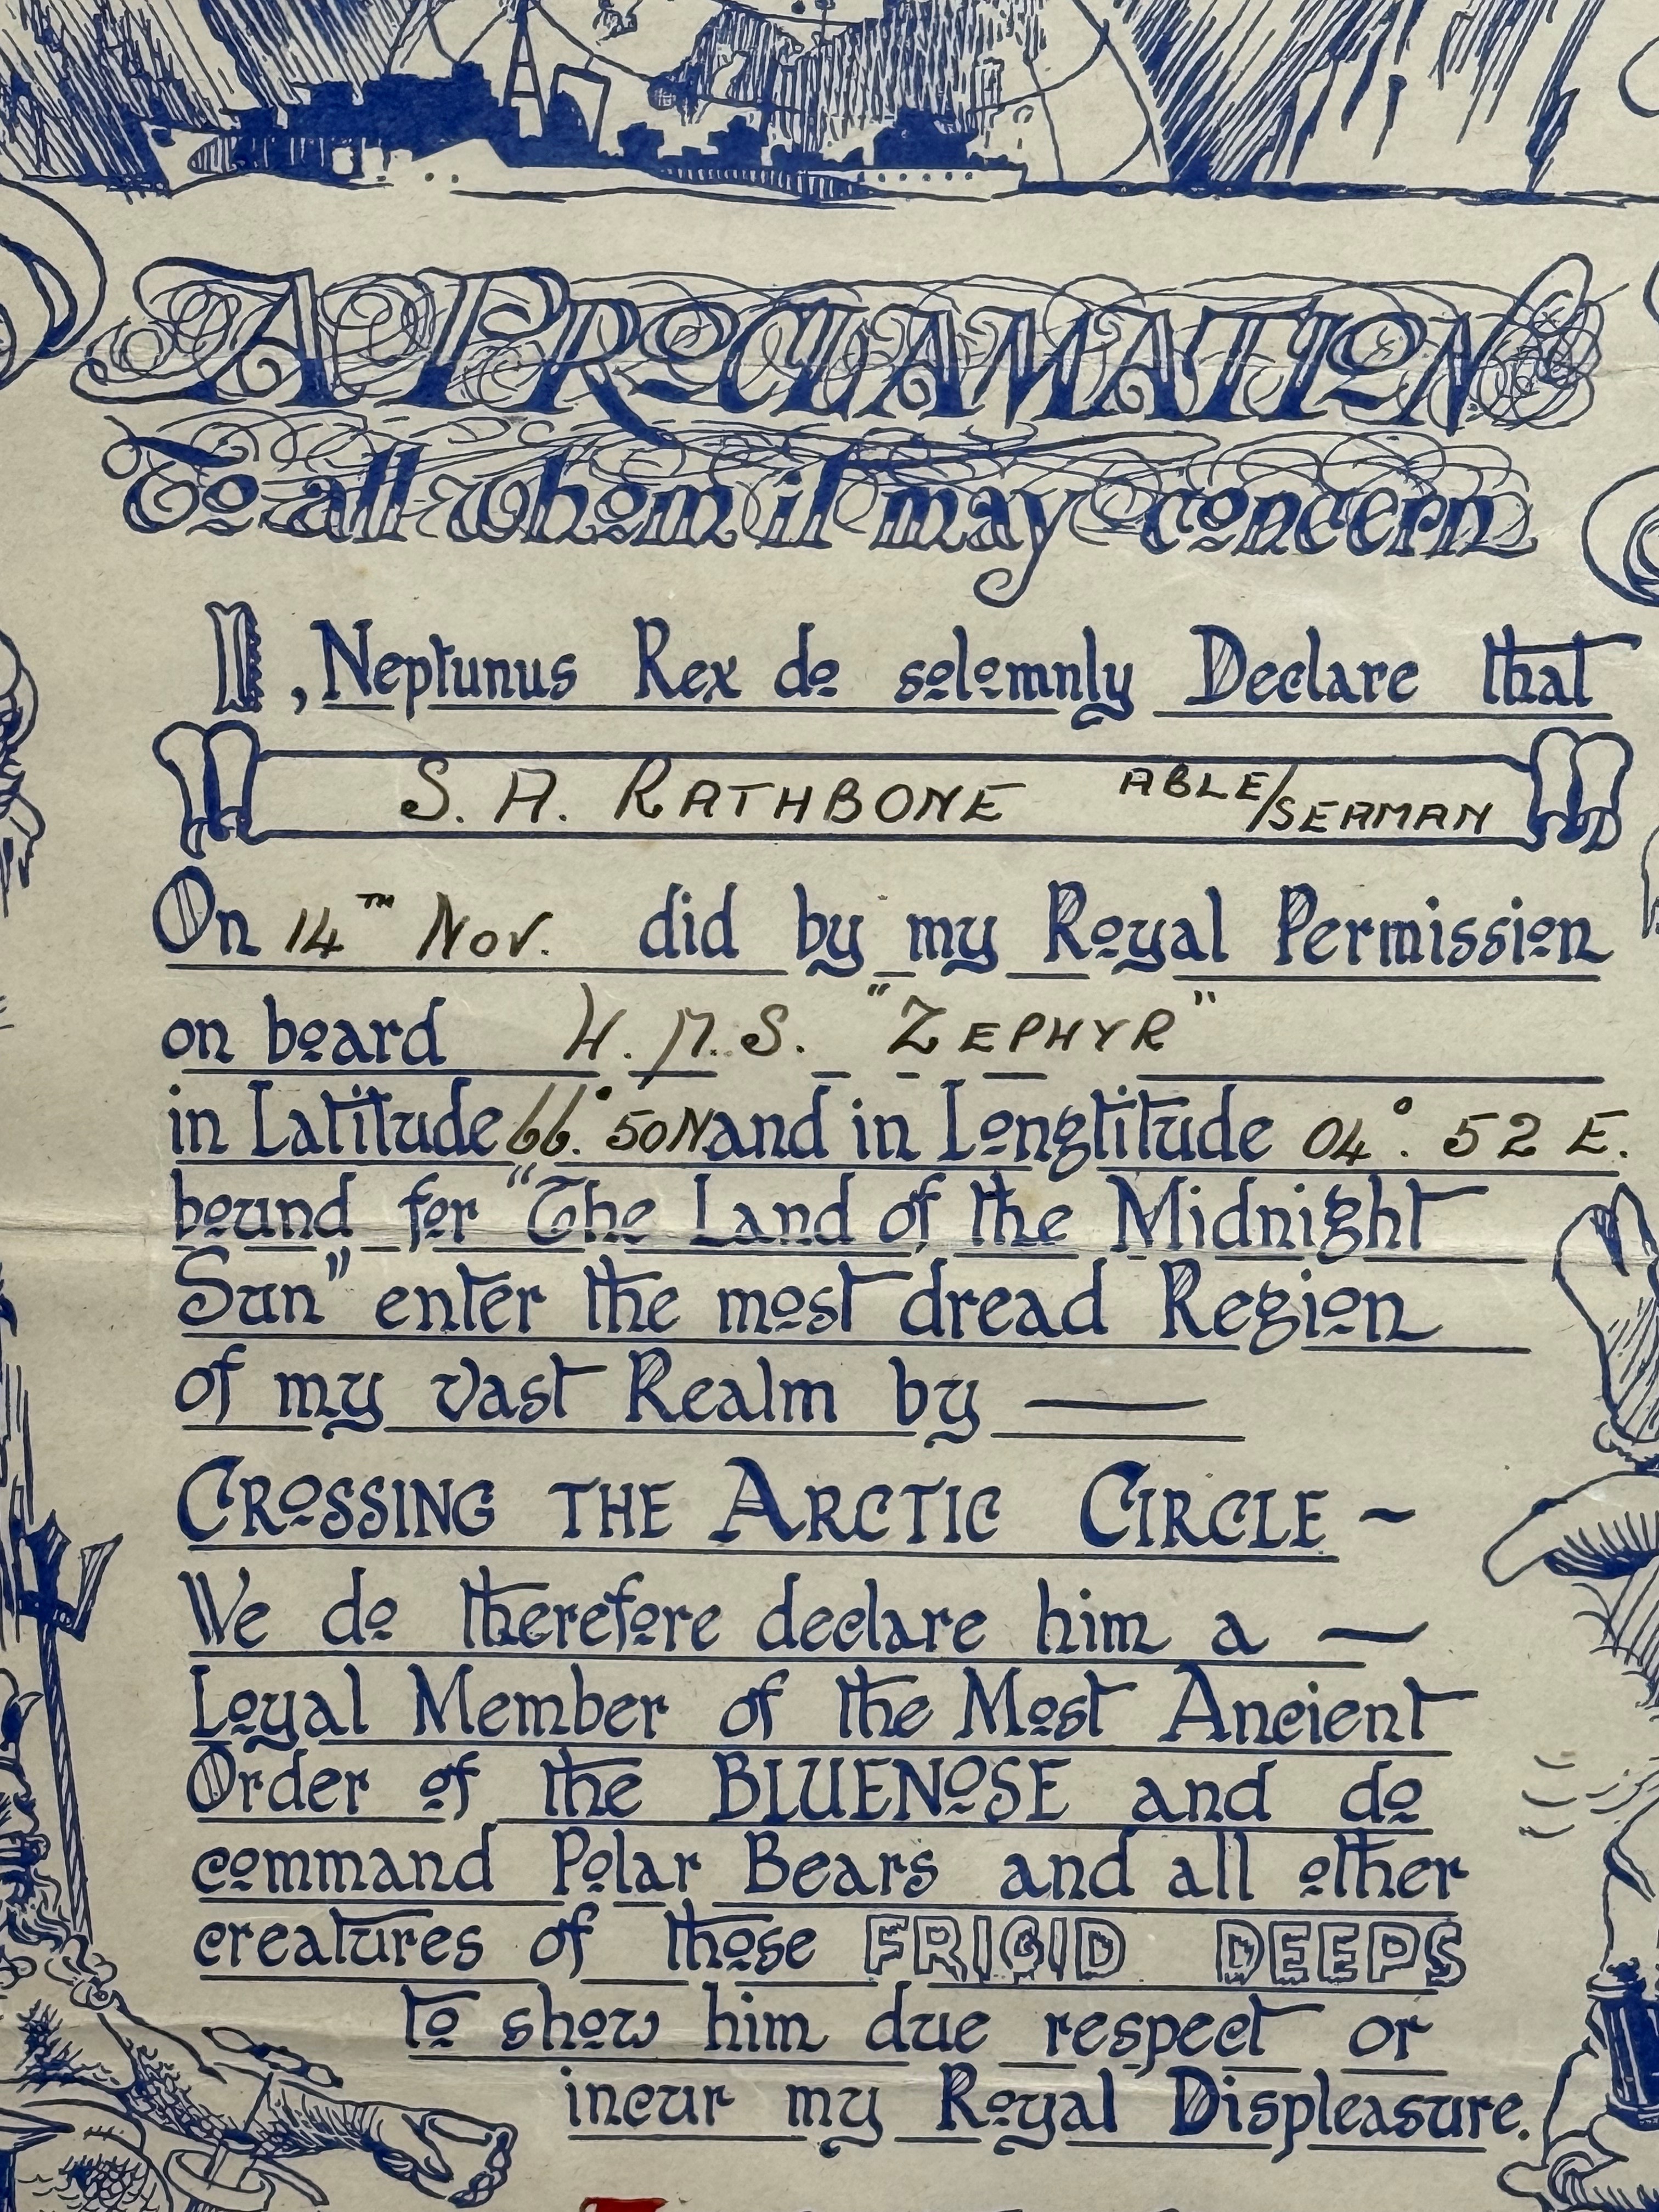 A PROCLAMATION
To all whom it may concern
I, Neptunus Rex do solomnly Declare that
S. A. RATHBONE ABLE/SEAMAN
On 14TH Nov. did by my Royal Permission
on board H.M.S. "ZEPHYR"
in Latitude 66°. 50N and in Longtitude 04°. 52 E.
bound for "The Land of the Midnight
Sun" enter the most dread Region
of my vast Realm by —
CROSSING THE ARCTIC CIRCLE ~
We do therefore declare him a —
Loyal Member of the Most Ancient
Order of the BLUENOSE and do
command Polar Bears and all other
creatures of those FRIGID DEEPS
to show him due respect or
incur my Royal Displeasure.